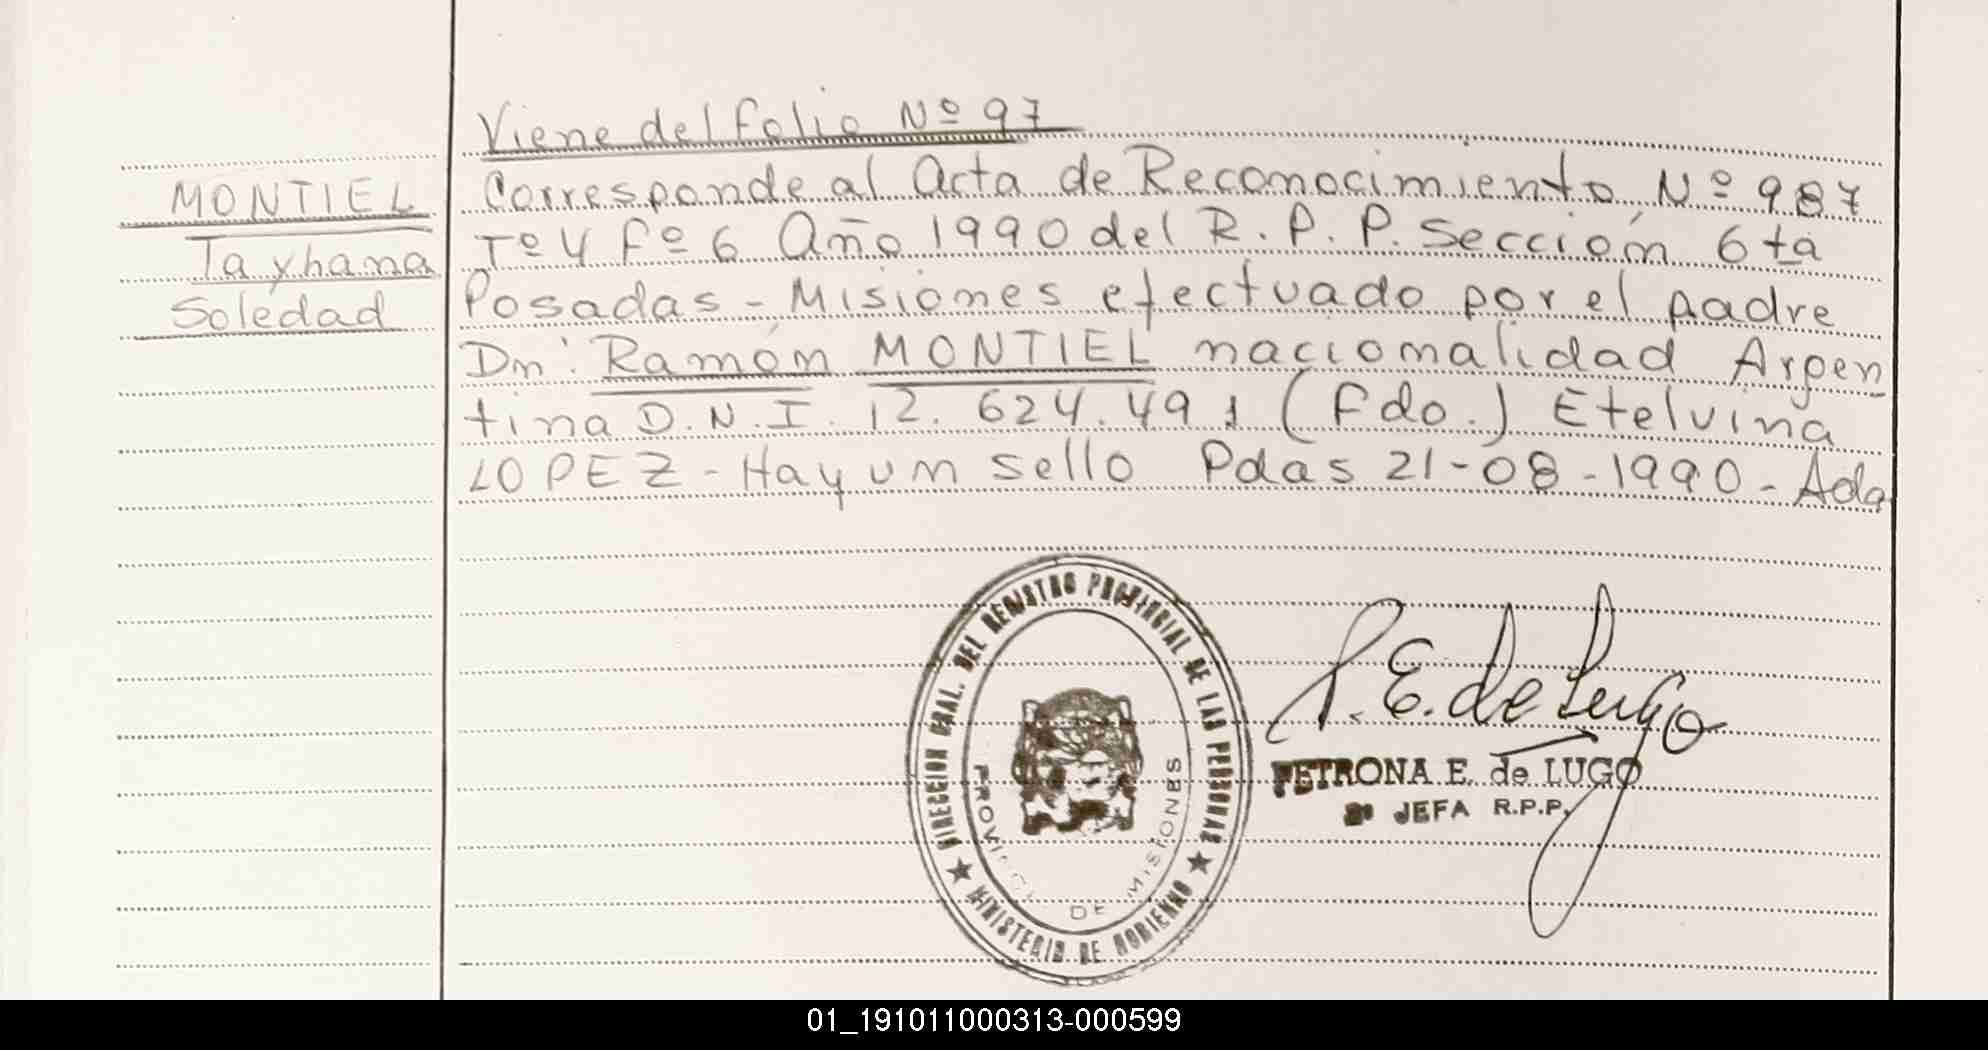 Viene del folio Nº 97
MONTIEL
Tayhana
Soledad
Corresponde al Acta de Reconocimiento Nº 987
Tº 4 Fº 6 Año 1990 del R.P.P. Sección 6ta
Posadas - Misiones efectuado por el padre
Dn: Ramón MONTIEL nacionalidad Argen
tina D.N.I. 12.624.491 (Fdo.) Etelvina
LOPEZ - Hay un sello Pdas 21-08-1990 - Ada
DIRECCION GRAL. DEL REGISTRO PROVINCIAL DE LAS PERSONAS
★ MINISTERIO DE GOBIERNO ★
PROVINCIA DE MISIONES
P. E. de Lugo
PETRONA E. de LUGO
JEFA R.P.P.
01_191011000313-000599